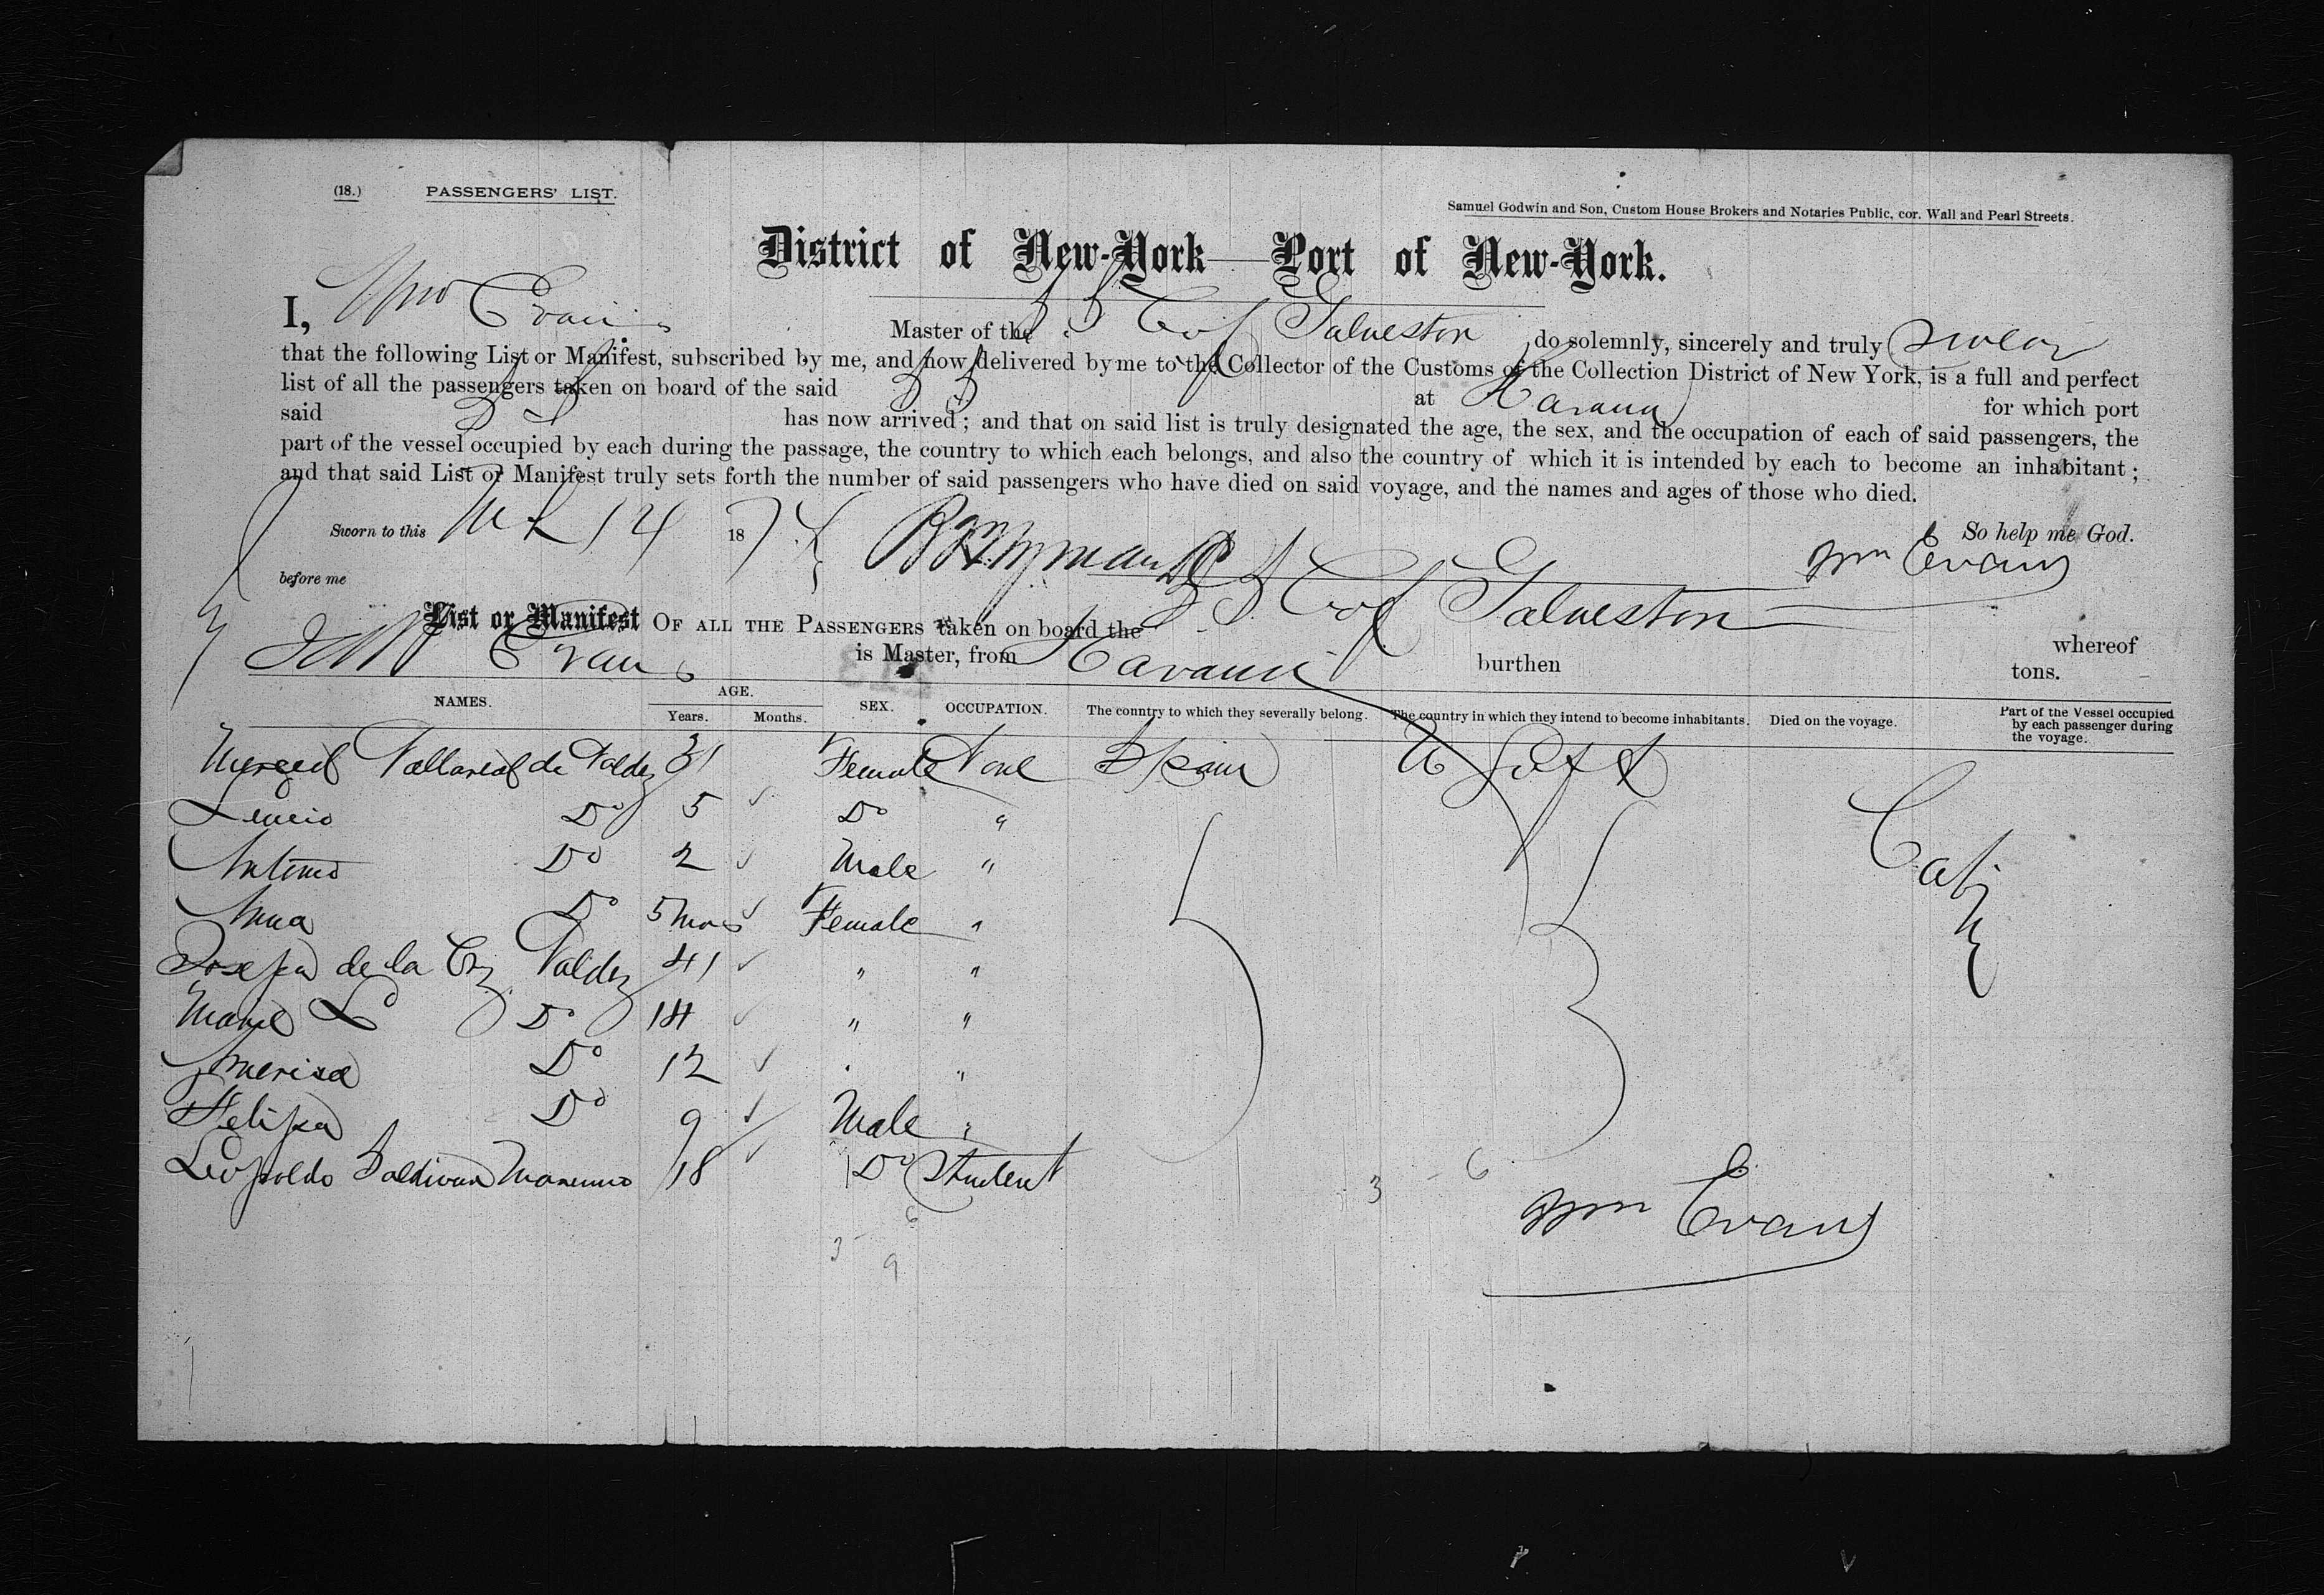 (18.) PASSENGERS' LIST.
Samuel Godwin and Son, Custom House Brokers and Notaries Public, cor. Wall and Pearl Streets.
District of New-York—Port of New-York.
I, Wm Evans Master of the S S C of Galveston do solemnly, sincerely and truly swear
that the following List or Manifest, subscribed by me, and now delivered by me to the Collector of the Customs of the Collection District of New York, is a full and perfect
list of all the passengers taken on board of the said S S at Havana for which port
said S S has now arrived; and that on said list is truly designated the age, the sex, and the occupation of each of said passengers, the
part of the vessel occupied by each during the passage, the country to which each belongs, and also the country of which it is intended by each to become an inhabitant;
and that said List or Manifest truly sets forth the number of said passengers who have died on said voyage, and the names and ages of those who died.
So help me God.
Sworn to this 14 187
Wm Evans
before me
List or Manifest OF ALL THE PASSENGERS taken on board the S S C of Galveston whereof
Evans is Master, from Havana burthen tons.
NAMES. AGE. Years. Months. SEX. OCCUPATION. The country to which they severally belong. The country in which they intend to become inhabitants. Died on the voyage. Part of the Vessel occupied by each passenger during the voyage.
de Valdez 31 Female None Spain U States
Do 5 Do "
Antonio Do 2 Male "
Anna Do 5 mos Female "
Josefa de la Cruz Valdez 41 " "
Do 14 " "
Do 12 "
Felipa Do 9 Male "
Leopoldo 18 Do Student
Cabin
3 - 6
Wm Evans
6
3 -
9